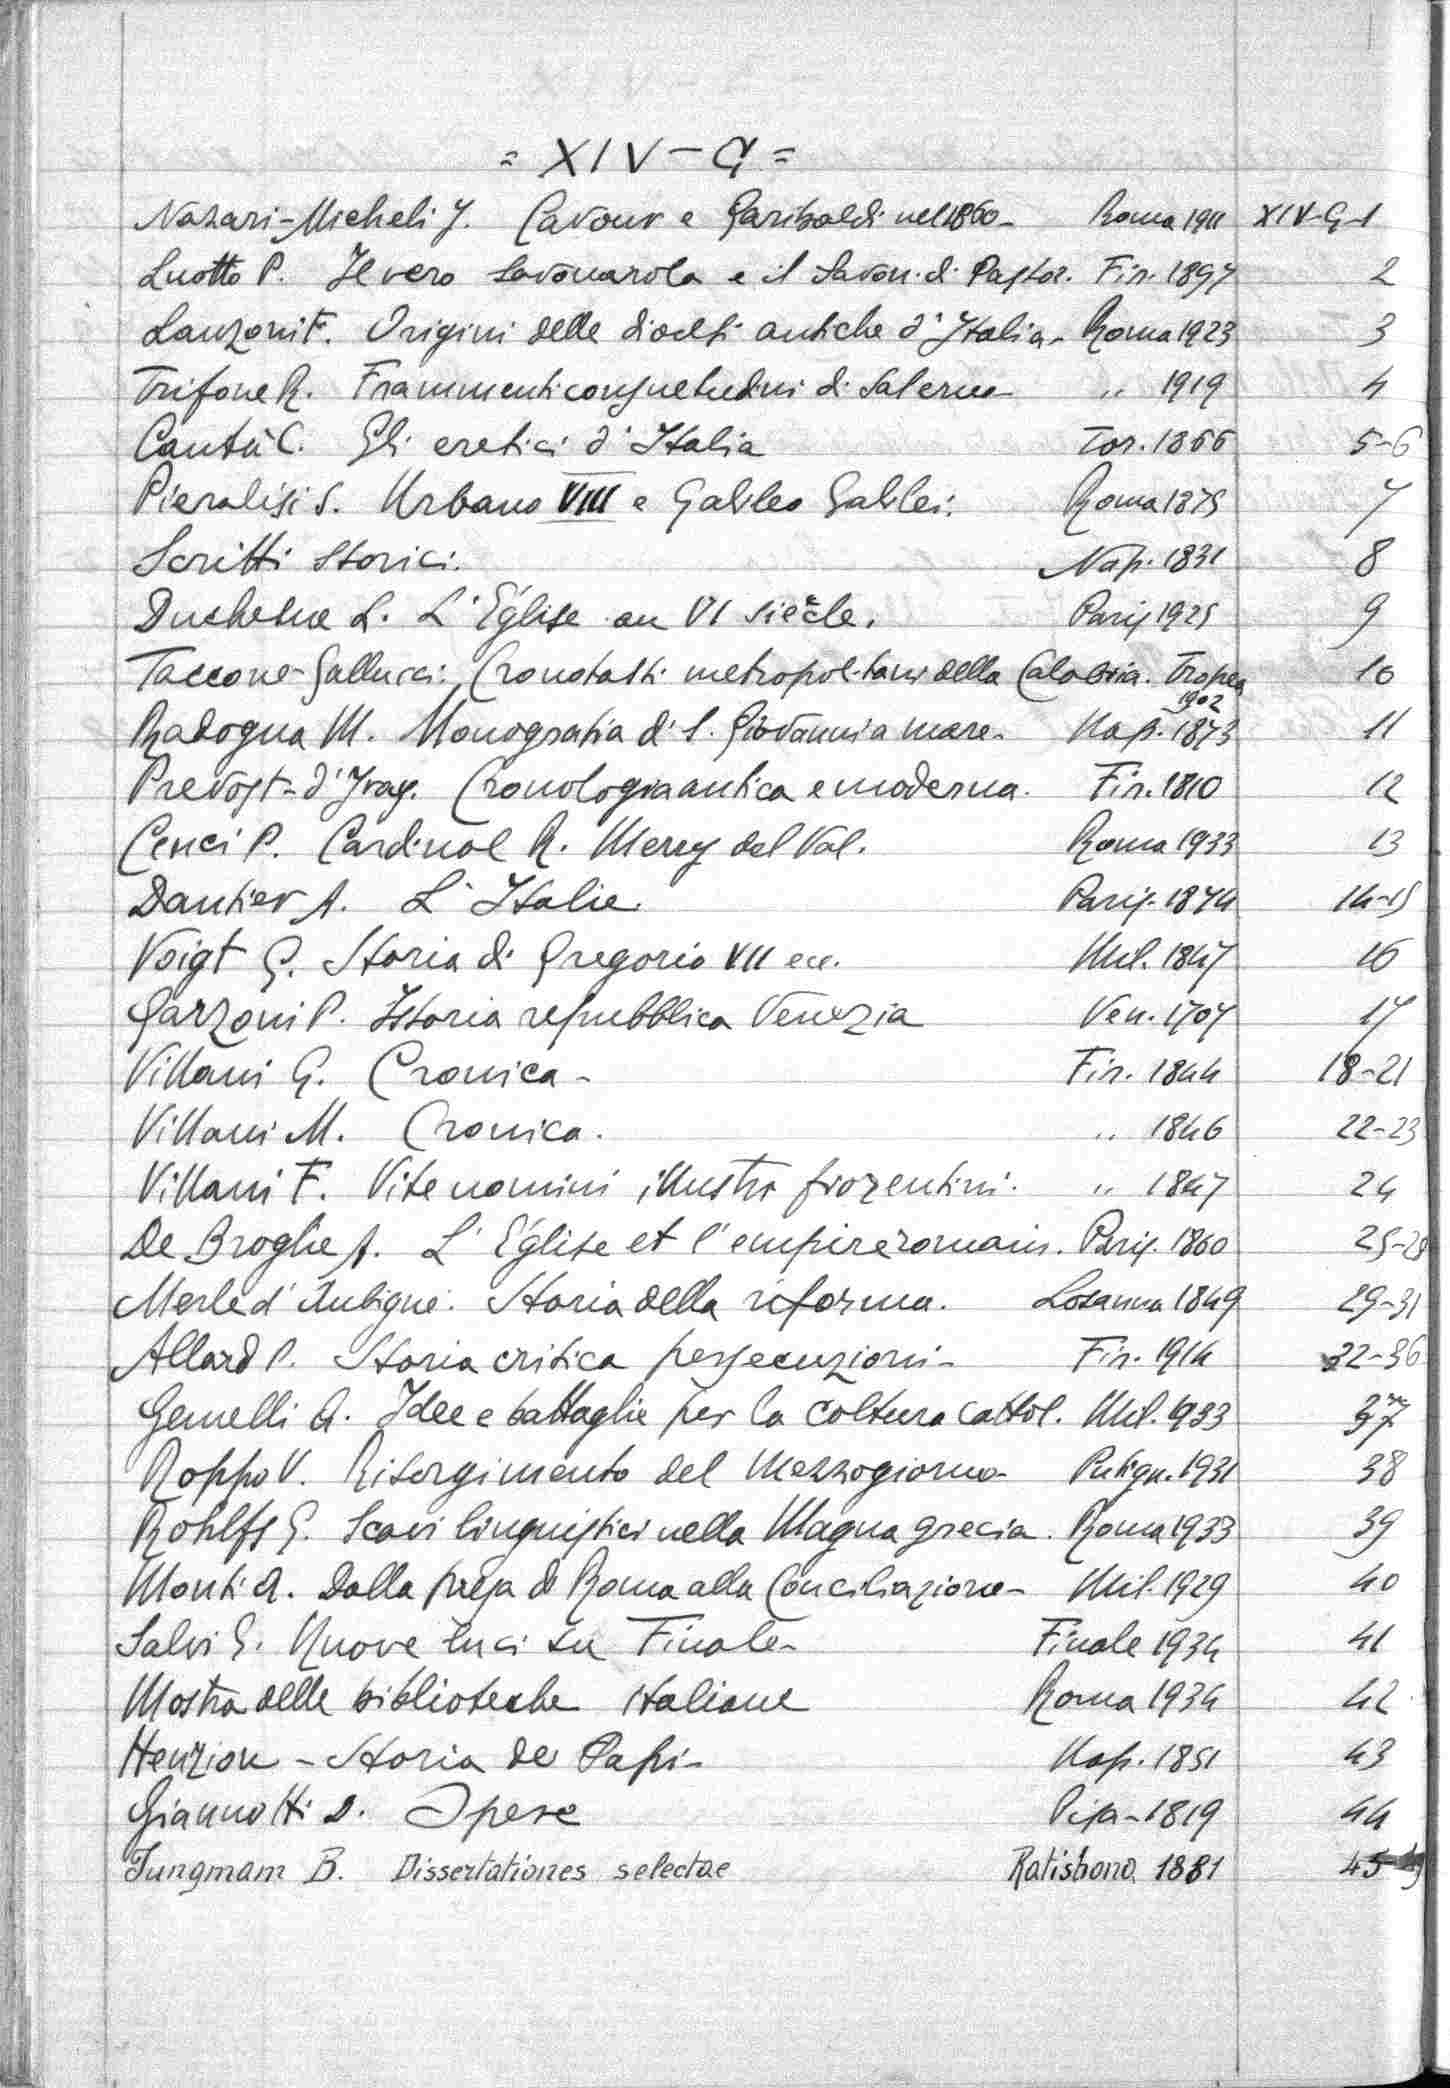 = XIV-G =
Nazari-Micheli J. Cavour e Garibaldi nel 1860- Roma 1911 XIV-G-1
Luotto P. Il vero Savonarola e il Savon. di Pastor. Fir. 1897 2
Lanzoni F. Origini delle diocesi antiche d'Italia- Roma 1923 3
Trifone R. Frammenti consuetudini di Salerno- " 1919 4
Cantù C. Gli eretici d'Italia Tor. 1866 5-6
Pieralisi S. Urbano VIII e Galileo Galilei. Roma 1875 7
Scritti storici. Nap. 1831 8
Duchesne L. L'Église au VI siècle. Paris 1925 9
Taccone-Gallucci. Cronotassi metropolitani della Calabria. Tropea 10
1902
Radogna M. Monografia di S. Giovanni a mare- Nap. 1873 11
Prevost-d'Iray. Cronologia antica e moderna. Fir. 1810 12
Cenci P. Cardinal R. Merry del Val. Roma 1933 13
Dantier A. L'Italie. Parig. 1874 14-15
Voigt G. Storia di Gregorio VII ecc. Mil. 1847 16
Garzoni P. Istoria repubblica Venezia Ven. 1707 17
Villani G. Cronica- Fir. 1844 18-21
Villani M. Cronica. " 1846 22-23
Villani F. Vite uomini illustri fiorentini. " 1847 24
De Broglie A. L'Église et l'empire romain. Parig. 1860 25-28
Merle d'Aubigné. Storia della riforma. Losanna 1849 29-31
Allard P. Storia critica persecuzioni- Fir. 1914 32-36
Gemelli A. Idee e battaglie per la coltura cattol. Mil. 1933 37
Roppo V. Risorgimento del Mezzogiorno- Putign. 1931 38
Rohlfs G. Scavi linguistici nella Magna grecia. Roma 1933 39
Monti A. Dalla presa di Roma alla Conciliazione- Mil. 1929 40
Salvi G. Nuove luci su Finale- Finale 1934 41
Mostra delle biblioteche italiane Roma 1934 42
Henrion - Storia dei Papi- Nap. 1851 43
Giannotti D. Opere Pisa-1819 44
Jungmann B. Dissertationes selectae Ratisbona 1881 45